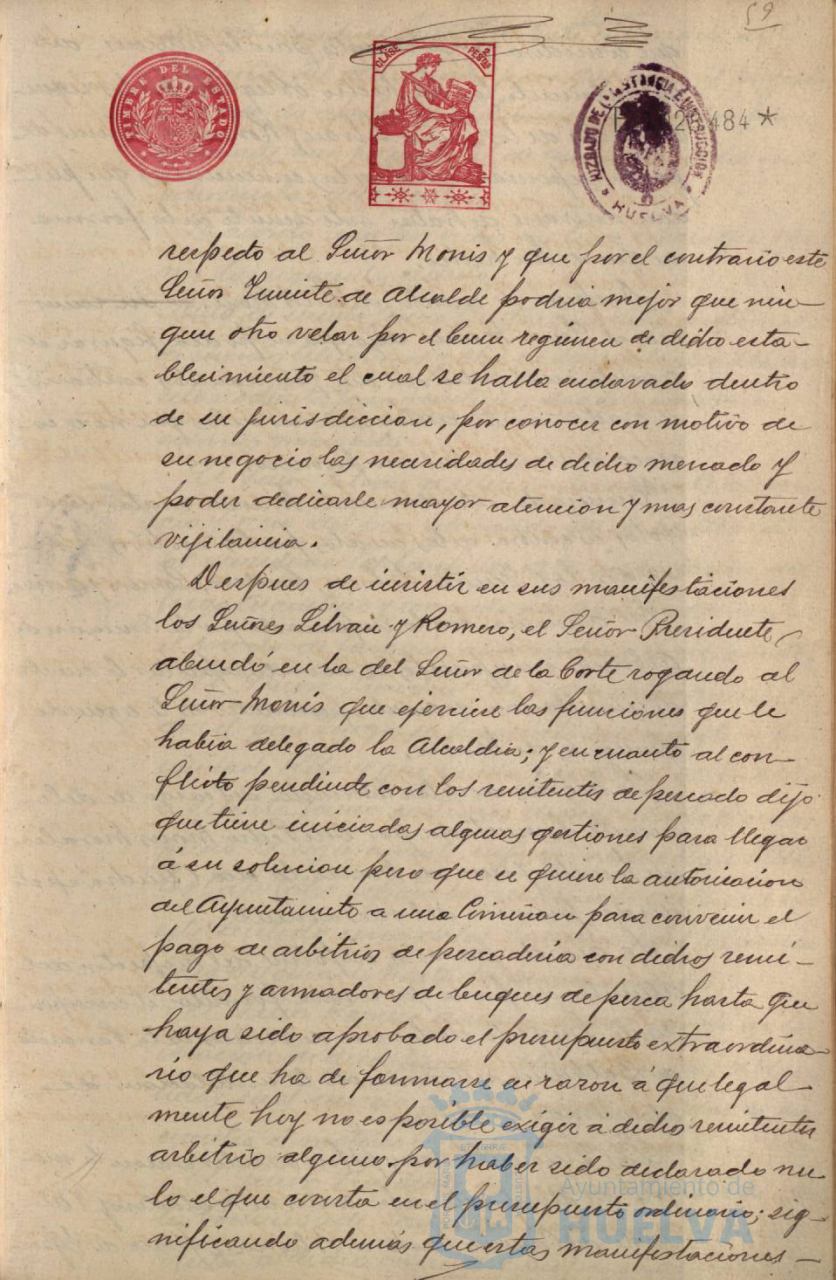 59
TIMBRE DEL ESTADO
CLASE
2 PESETAS
JUZGADO DE 1ª INSTANCIA E INSTRUCCION
HUELVA
484 *
respecto al Señor Monis y que por el contrario este
Señor Teniente de Alcalde podria mejor que nin-
gun otro velar por el buen regimen de dicho esta-
blecimiento el cual se halla enclavado dentro
de su jurisdiccion, por conocer con motivo de
su negocio las necesidades de dicho mercado y
poder dedicarle mayor atencion y mas constante
vijilancia.
Despues de insistir en sus manifestaciones
los Señores y Romero, el Señor Presidente
abundó en la del Señor de la Corte rogando al
Señor Monis que ejerciese las funciones que le
habia delegado la Alcaldia; y en cuanto al con-
flicto pendiente con los remitentes de pescado dijo
que tiene iniciadas algunas gestiones para llegar
á su solucion pero que se quiere la autorizacion
del Ayuntamiento a una Comision para convenir el
pago de arbitrios de pescaderia con dichos remi-
tentes y armadores de buques de pesca hasta que
haya sido aprobado el presupuesto extraordina-
rio que ha de formarse en razon á que legal
mente hoy no es posible exigir á dicho remitentes
arbitrio alguno por haber sido declarado nu
lo el que consta en el presupuesto ordinario; sig-
nificando además que estas manifestaciones-
Ayuntamiento de
HUELVA